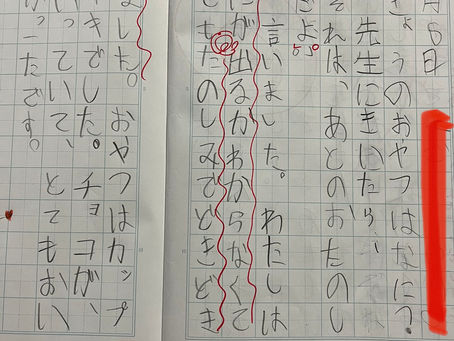 月6日
ょうのおやつはなに?
先生にきいたら、
それは、あとのおたのし
よ
言いました。わたしは
にが出るかわからなくて
ともたのしみでどきどき
ました。おやつはカップ
きでした。チョコが、
っていて、とてもおい
かったです。